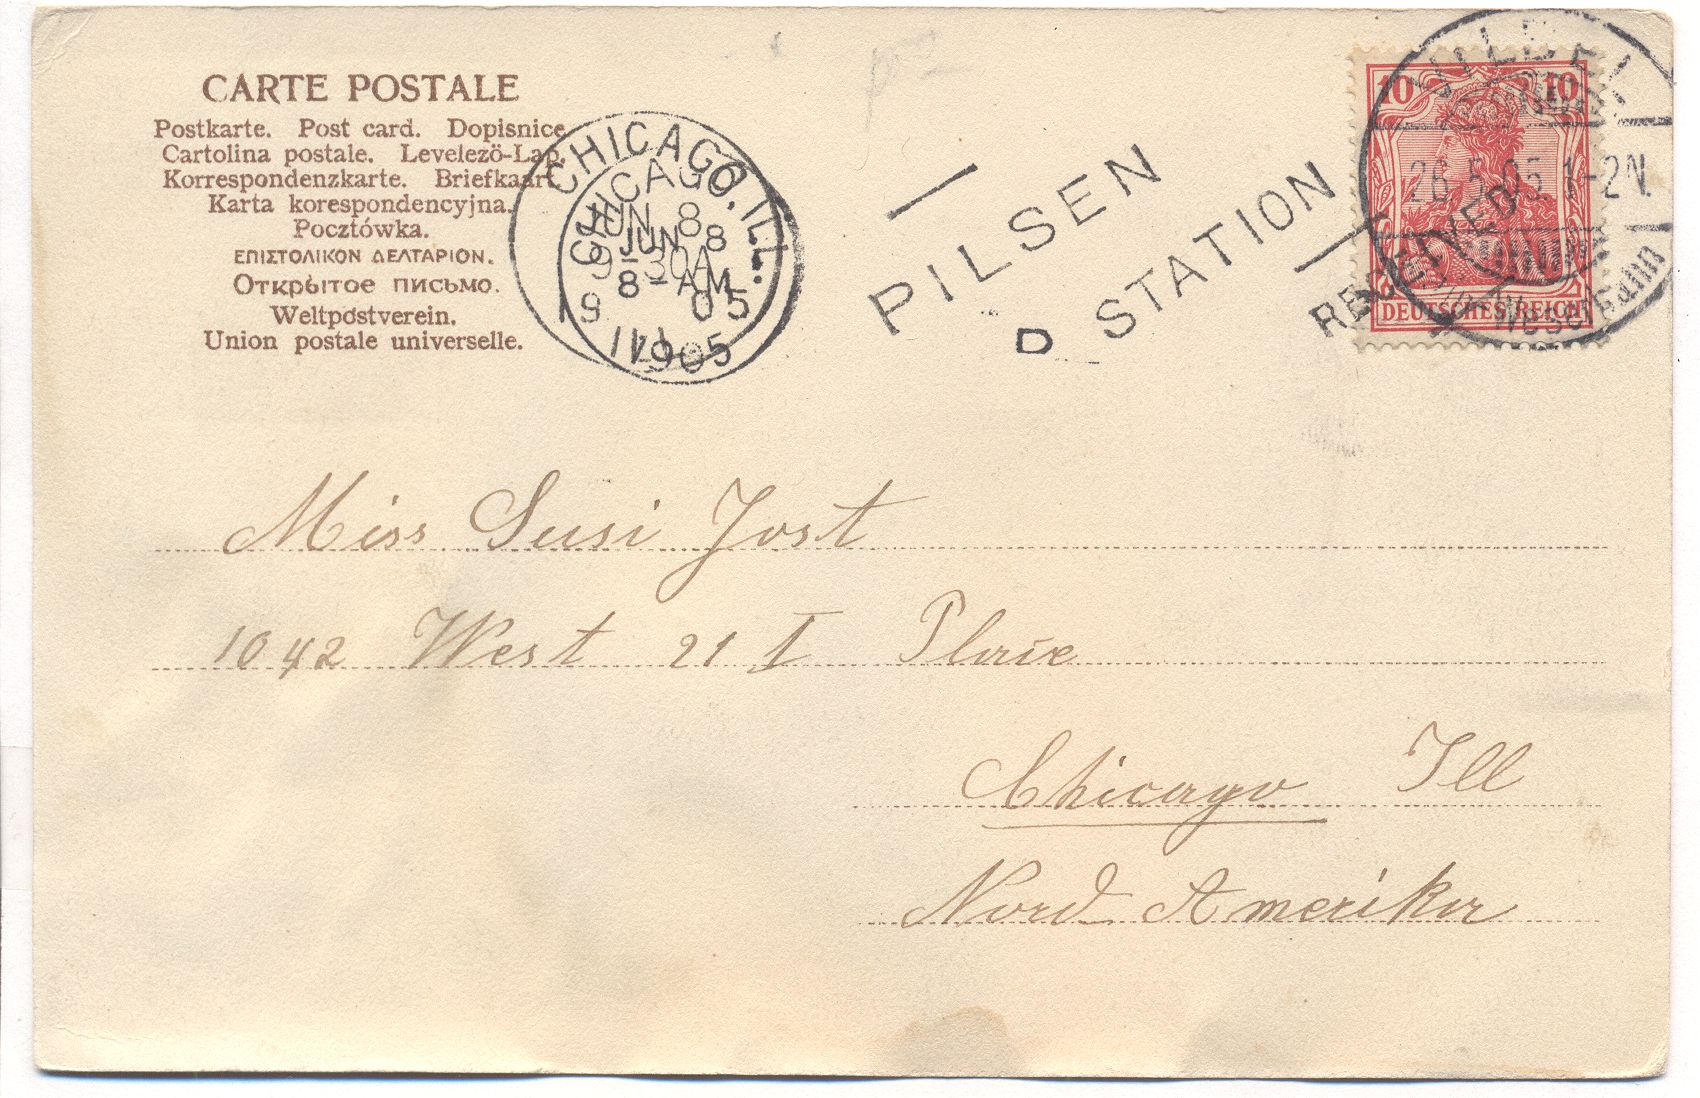 CARTE POSTALE
Postkarte. Post card. Dopisnice.
Cartolina postale. Levelező-Lap.
Korrespondenzkarte. Briefkaart.
Karta korespondencyjna.
Pocztówka.
ΕΠΙΣΤΟΛΙΚΟΝ ΔΕΛΤΑΡΙΟΝ.
Открытое письмо.
Weltpostverein.
Union postale universelle.
CHICAGO, ILL.
CHICAGO
JUN 8
JUN 8
9-30A
8-AM
1905
05
ILL
PILSEN
D STATION
RECEIVED
10 10
DEUTSCHES REICH
26.5.05.1-2N.
Miss Susi Jost
1042 West 21 I Place
Chicago Ill
Nord Amerika